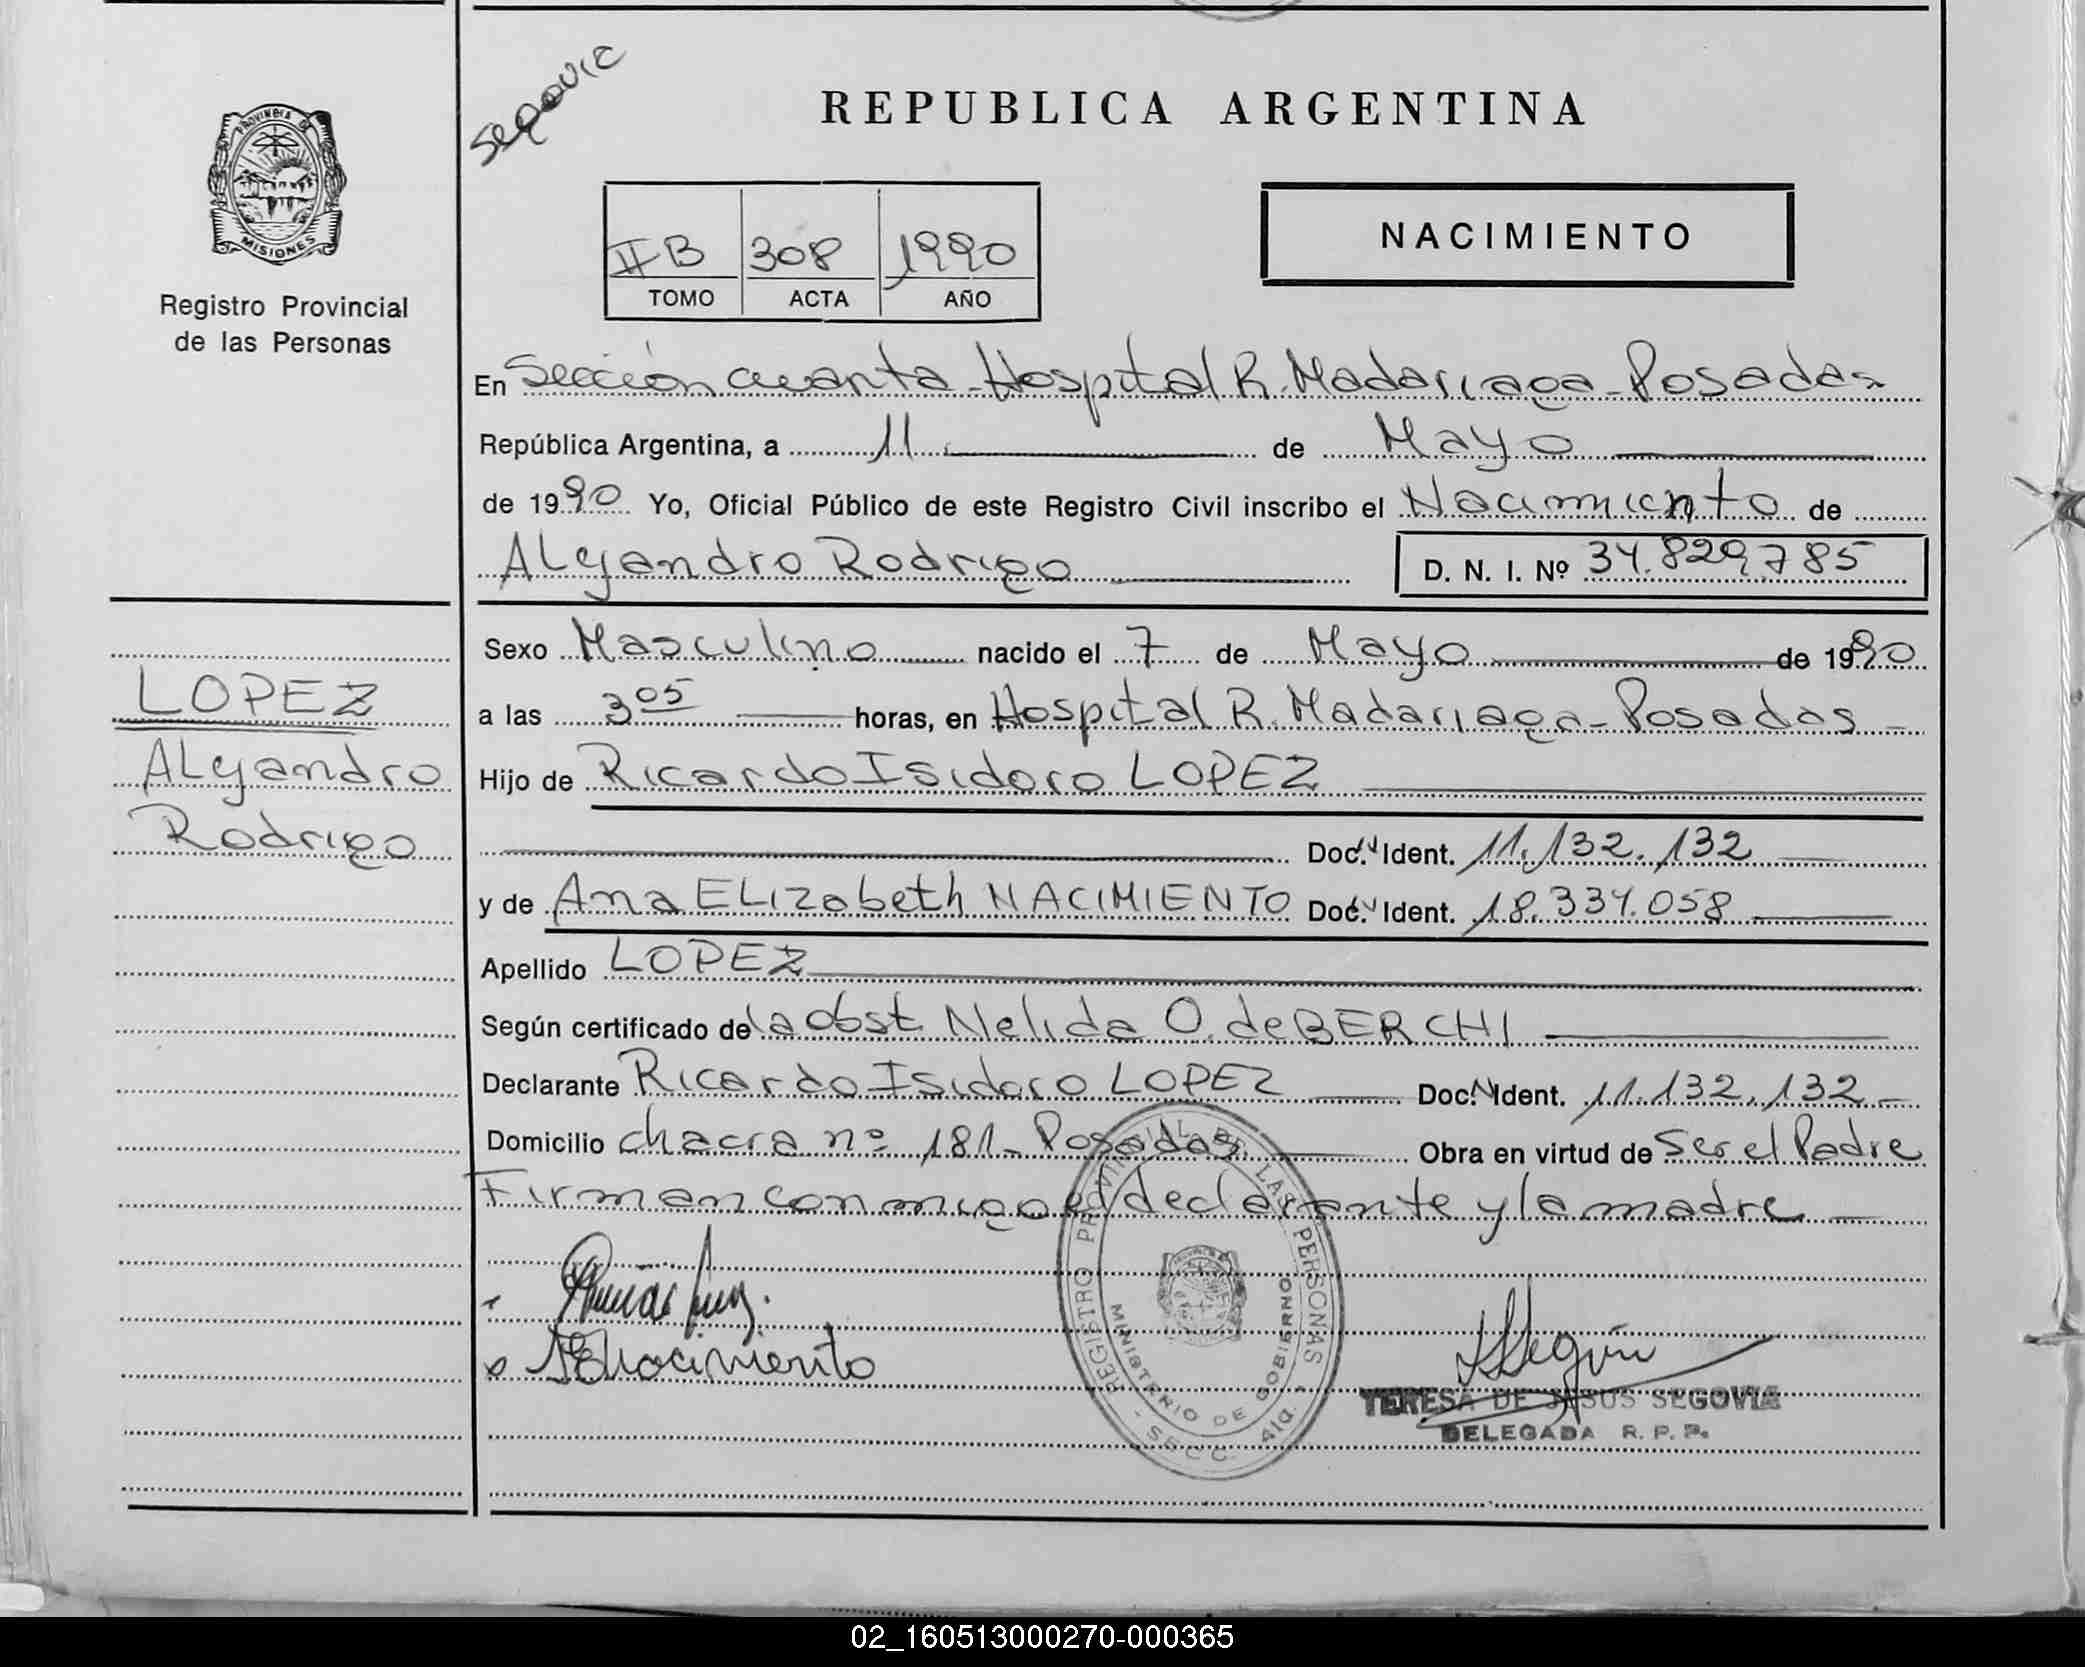 Segovia
REPUBLICA ARGENTINA
PROVINCIA DE
MISIONES
Registro Provincial
de las Personas
II B 308 1990
TOMO ACTA AÑO
NACIMIENTO
En Sección cuarta - Hospital R. Madariaga - Posadas
República Argentina, a 11 de Mayo
de 1990 Yo, Oficial Público de este Registro Civil inscribo el Nacimiento de
Alejandro Rodrigo D. N. I. Nº 34.829.785
LOPEZ
Alejandro
Rodrigo
Sexo Masculino nacido el 7 de Mayo de 1990
a las 3 05 horas, en Hospital R. Madariaga - Posadas -
Hijo de Ricardo Isidoro LOPEZ
Doc. N Ident. 11.132.132
y de Ana ELizabeth NACIMIENTO Doc. N Ident. 18.334.058
Apellido LOPEZ
Según certificado de la obst. Nelida O. de BERCHI
Declarante Ricardo Isidoro LOPEZ Doc. N Ident. 11.132.132 -
Domicilio chacra nº 181 - Posadas Obra en virtud de Ser el Padre
Firman conmigo el declarante y la madre -
REGISTRO PROVINCIAL DE LAS PERSONAS
MINISTERIO DE GOBIERNO
- SECC. 4ta. -
AENacimiento
TERESA DE JESUS SEGOVIA
DELEGADA R. P. P.
02_160513000270-000365